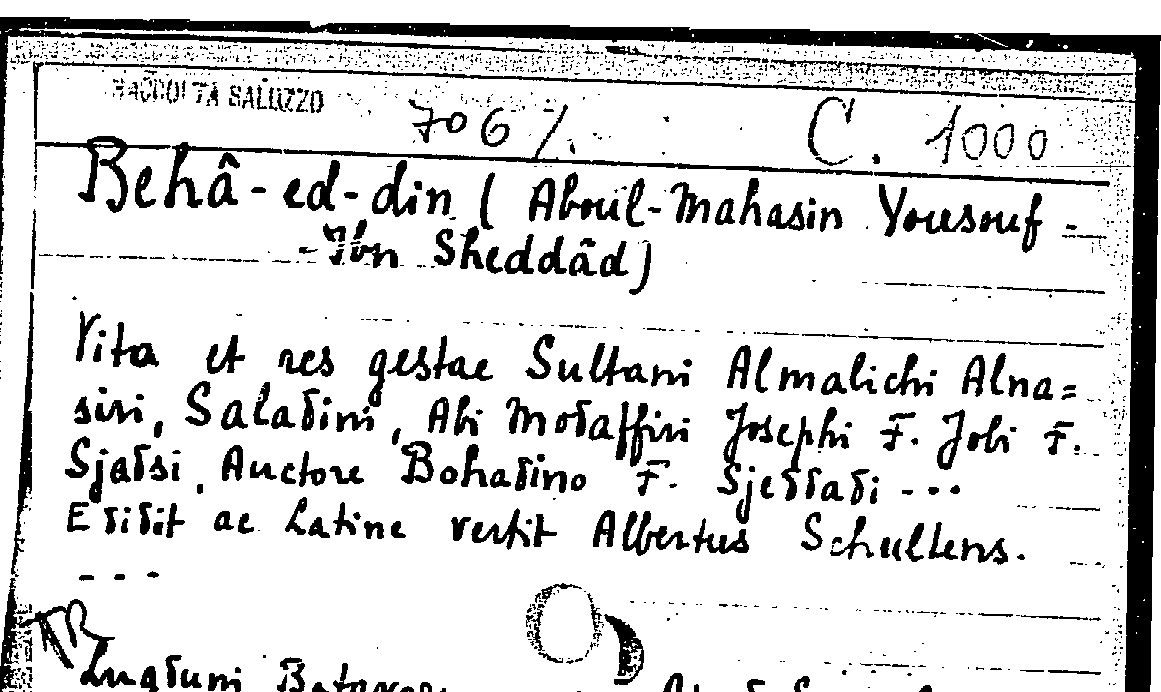 RACCOLTA SALUZZO
706 /. C. 1000
Behâ-ed-din (Aboul-Mahasin Yousouf-
-Ibn Sheddâd)
Vita et res gestae Sultani Almalichi Alna=
siri, Saladini, Abi Modaffiri Josephi F. Jobi F.
Sjadsi, Auctore Bohadino F. Sjeddadi ---
Edidit ac Latine vertit Albertus Schultens.
---
Lugduni